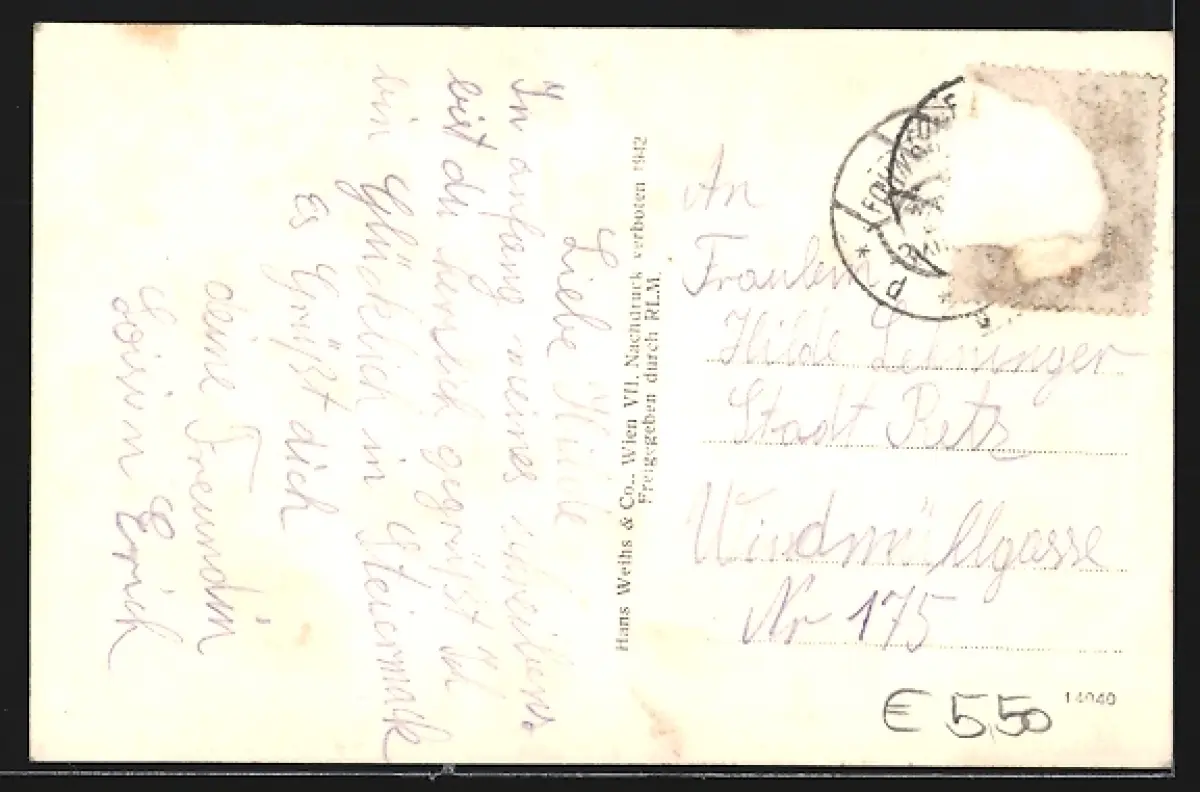 Liebe Hilde
In anfang meines schreibens
bist du herzlich gegrüßt Ich
bin Glücklich in Steiermark
Es Grüßt dich
deine Freundin
Erich
Hans Weihs & Co., Wien VII. Nachdruck verboten 1942
Freigegeben durch RLM.
An
Fraulein
Hilde
Stadt Retz
Windmühlgasse
Nr 175
14040
€ 5,50